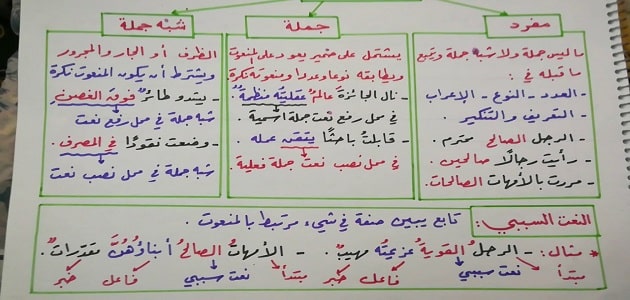 مفرد
ما ليس جملة ولا شبه جملة ويتبع
ما قبله في :
- العدد - النوع - الإعراب
- التعريف والتنكير .
- الرجل الصالح محترم .
- رأيت رجالًا صالحين .
- مررت بالأمهات الصالحات .
جملة
يشتمل على ضمير يعود على المنعوت
ويطابقه نوعا وعددا ومنعوته نكرة
- نال الجائزة عالمٌ "عقليته منظمة" .
في محل رفع نعت جملة اسمية
- قابلتُ باحثًا يتقن عمله .
في محل نصب نعت جملة فعلية .
شبه جملة
الظرف أو الجار والمجرور
ويشترط أن يكون المنعوت نكرة
- يشدو طائرٌ "فوق الغصن"
شبه جملة في محل رفع نعت
- وضعت نقودًا في المصرف .
شبه جملة في محل نصب نعت
النعت السببي : تابع يبين صفة في شيء مرتبط بالمنعوت .
* مثال : - الرجلُ القويةُ عزيمتُه مهيبٌ . - الأمهاتُ الصالحُ أبناؤُهُنَّ مقدراتٌ .
مبتدأ نعت سببي فاعل خبر مبتدأ نعت سببي فاعل خبر